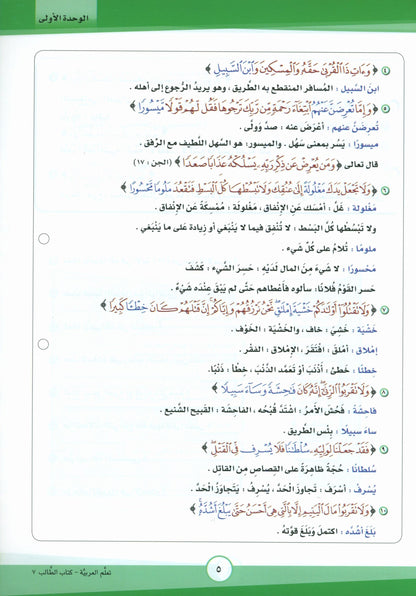 الوحدة الأولى
٤) ﴿ وَءَاتِ ذَا ٱلْقُرْبَىٰ حَقَّهُۥ وَٱلْمِسْكِينَ وَٱبْنَ ٱلسَّبِيلِ ﴾
ابنَ السَّبيل : المُسافر المنقطع به الطَّريق ، وهو يريدُ الرُّجوعَ إلى أهله .
٥) ﴿ وَإِمَّا تُعْرِضَنَّ عَنْهُمُ ٱبْتِغَآءَ رَحْمَةٍ مِّن رَّبِّكَ تَرْجُوهَا فَقُل لَّهُمْ قَوْلًا مَّيْسُورًا ﴾
تُعرضَنَّ عنهم : أعْرَضَ عنه : صدَّ وَوَلَّى .
ميسورًا : يَسُر بمعنى سَهُل . والميسور: هو السَّهل اللَّطيف مع الرِّفق .
قال تعالى ﴿ وَمَن يُعْرِضْ عَن ذِكْرِ رَبِّهِۦ يَسْلُكْهُ عَذَابًا صَعَدًا ﴾ (الجن : ١٧)
٦) ﴿ وَلَا تَجْعَلْ يَدَكَ مَغْلُولَةً إِلَىٰ عُنُقِكَ وَلَا تَبْسُطْهَا كُلَّ ٱلْبَسْطِ فَتَقْعُدَ مَلُومًا مَّحْسُورًا ﴾
مَغلولة : غَلَّ : أمْسَك عَن الإنْفاق ، مَغْلُولة : مُمْسِكَة عَن الإنْفاق .
ولا تَبْسُطْها كُلَّ البَسْط : لا تُنْفِق فيما لا يَنْبَغي أو زيادة على ما يَنْبَغي .
ملومًا : تُلامُ على كُلِّ شيء .
مَحْسُورًا : لا شَيءَ مِنَ المال لَدَيْهِ : حَسَرَ الشَّيء : كَشَفَ
حَسَر القَوْمُ فُلانًا : سألوه فأعْطاهم حَتَّى لم يَبْقَ عِنْدَه شَيْءٌ .
٧) ﴿ وَلَا تَقْتُلُوٓا۟ أَوْلَـٰدَكُمْ خَشْيَةَ إِمْلَـٰقٍ نَّحْنُ نَرْزُقُهُمْ وَإِيَّاكُمْ إِنَّ قَتْلَهُمْ كَانَ خِطْـًٔا كَبِيرًا ﴾
خَشْيَة : خَشِيَ : خاف ، والخَشْيَة : الخَوْف .
إملاق : أمْلَقَ : افْتَقَرَ ، الإمْلاق : الفقر .
خِطئًا : خَطِئَ : أذْنَبَ أوْ تَعَمَّد الذَّنْبَ ، خِطْئًا : ذَنْبًا.
٨) ﴿ وَلَا تَقْرَبُوا۟ ٱلزِّنَىٰٓ إِنَّهُۥ كَانَ فَـٰحِشَةً وَسَآءَ سَبِيلًا ﴾
فاحشة : فَحُشَ الأمرُ : اشْتَدَّ قُبْحُه ، الفاحشة : القبيح الشَّنيع .
ساءَ سبيلًا : بِئْس الطَّريق .
٩) ﴿ فَقَدْ جَعَلْنَا لِوَلِيِّهِۦ سُلْطَـٰنًا فَلَا يُسْرِف فِّى ٱلْقَتْلِ ﴾
سُلطانًا : حُجَّة ظاهِرَةٌ على القِصاص مِن القاتِل .
يُسْرِفْ : أسْرَفَ : تَجاوزَ الحَدَّ ، يُسْرِفُ : يَتَجاوَزُ الحَدَّ .
١٠) ﴿ وَلَا تَقْرَبُوا۟ مَالَ ٱلْيَتِيمِ إِلَّا بِٱلَّتِى هِىَ أَحْسَنُ حَتَّىٰ يَبْلُغَ أَشُدَّهُۥ ﴾
بَلَغَ أشُدَّه : اكتملَ وَبَلَغَ قوَّتَهُ .
٥
تعلَّم العربيَّة - كتاب الطَّالب ٧